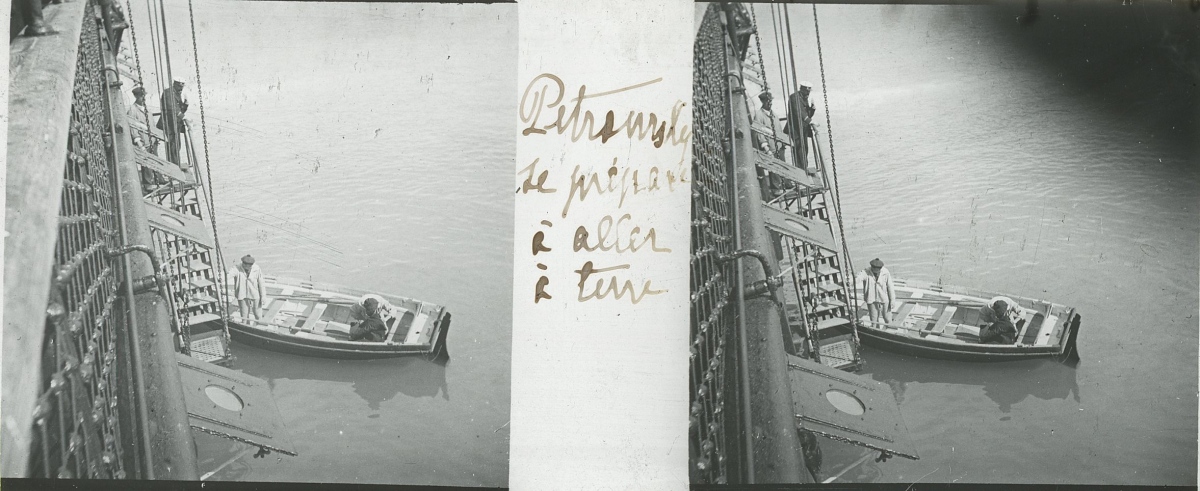 Petrowsky
se prépare
à aller
à terre